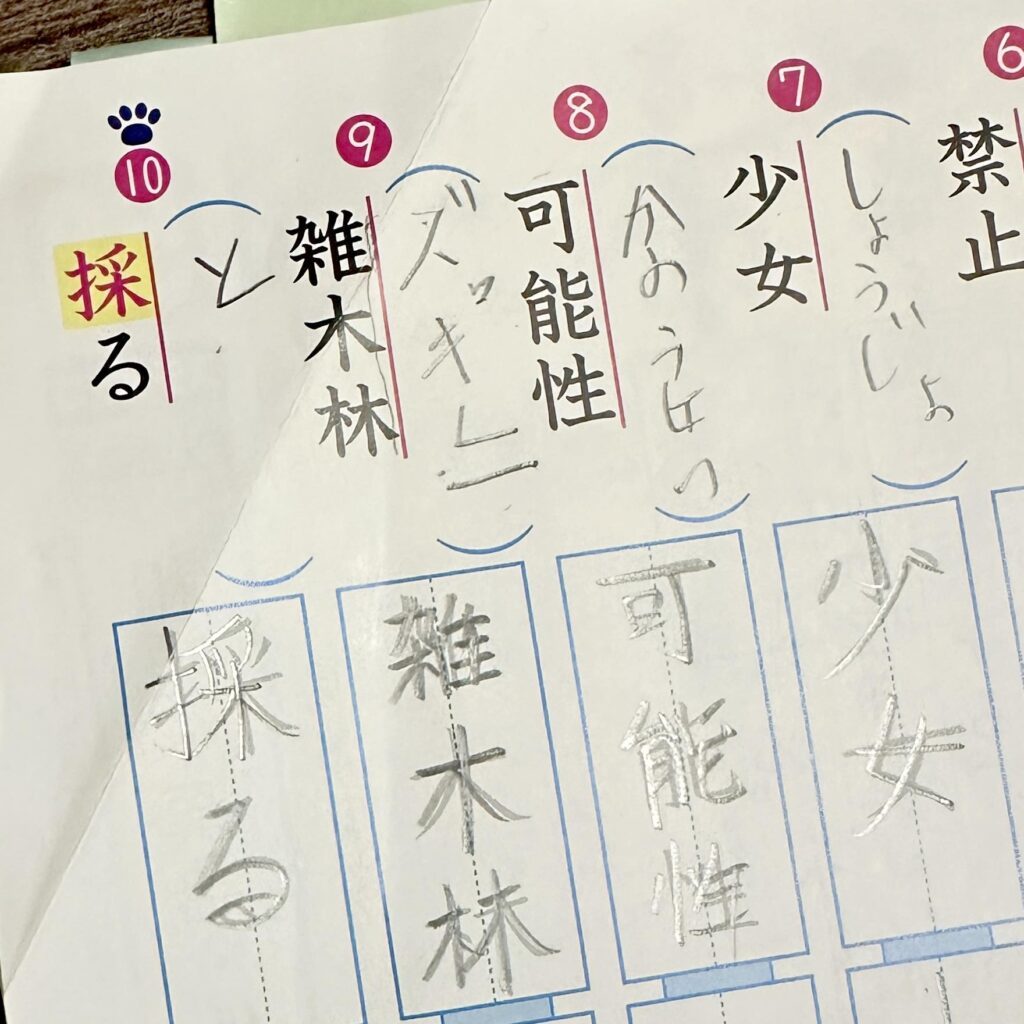 ⑥
禁止
⑦
少女
(しょうじょ)
少女
⑧
可能性
(かのうせい)
可能性
⑨
雑木林
(ズッキーニ)
雑木林
⑩
採る
(と)
採る